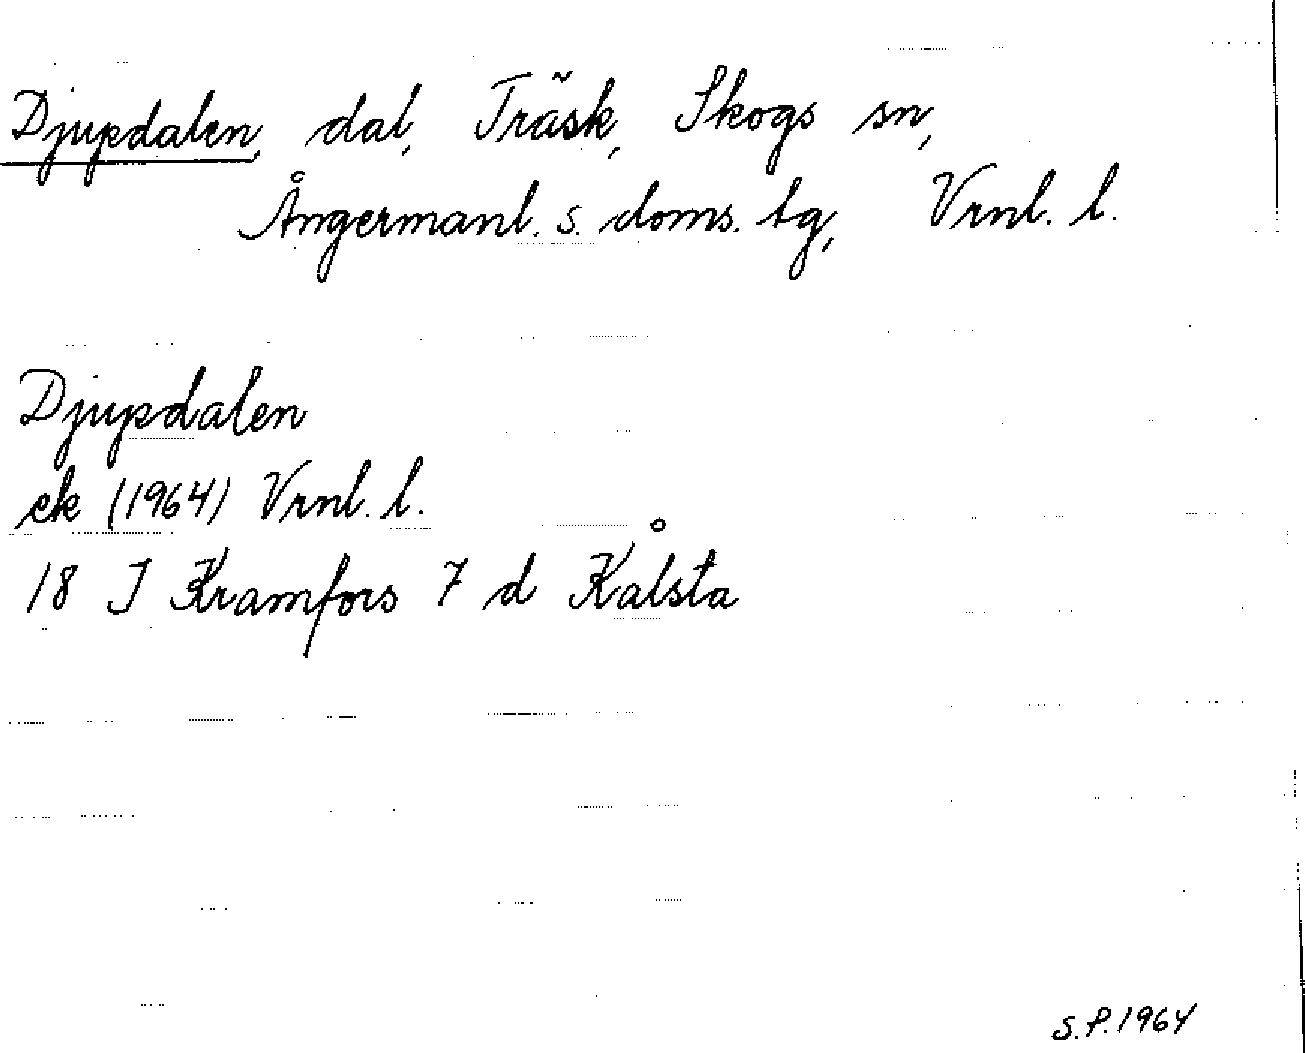 Djupdalen, dal, Träsk, Skogs sn,
Ångermanl. s. doms. tg, Vrnl. l.
Djupdalen
ek (1964) Vrnl. l.
18 J Kramfors 7 d Kålsta
S.P. 1964